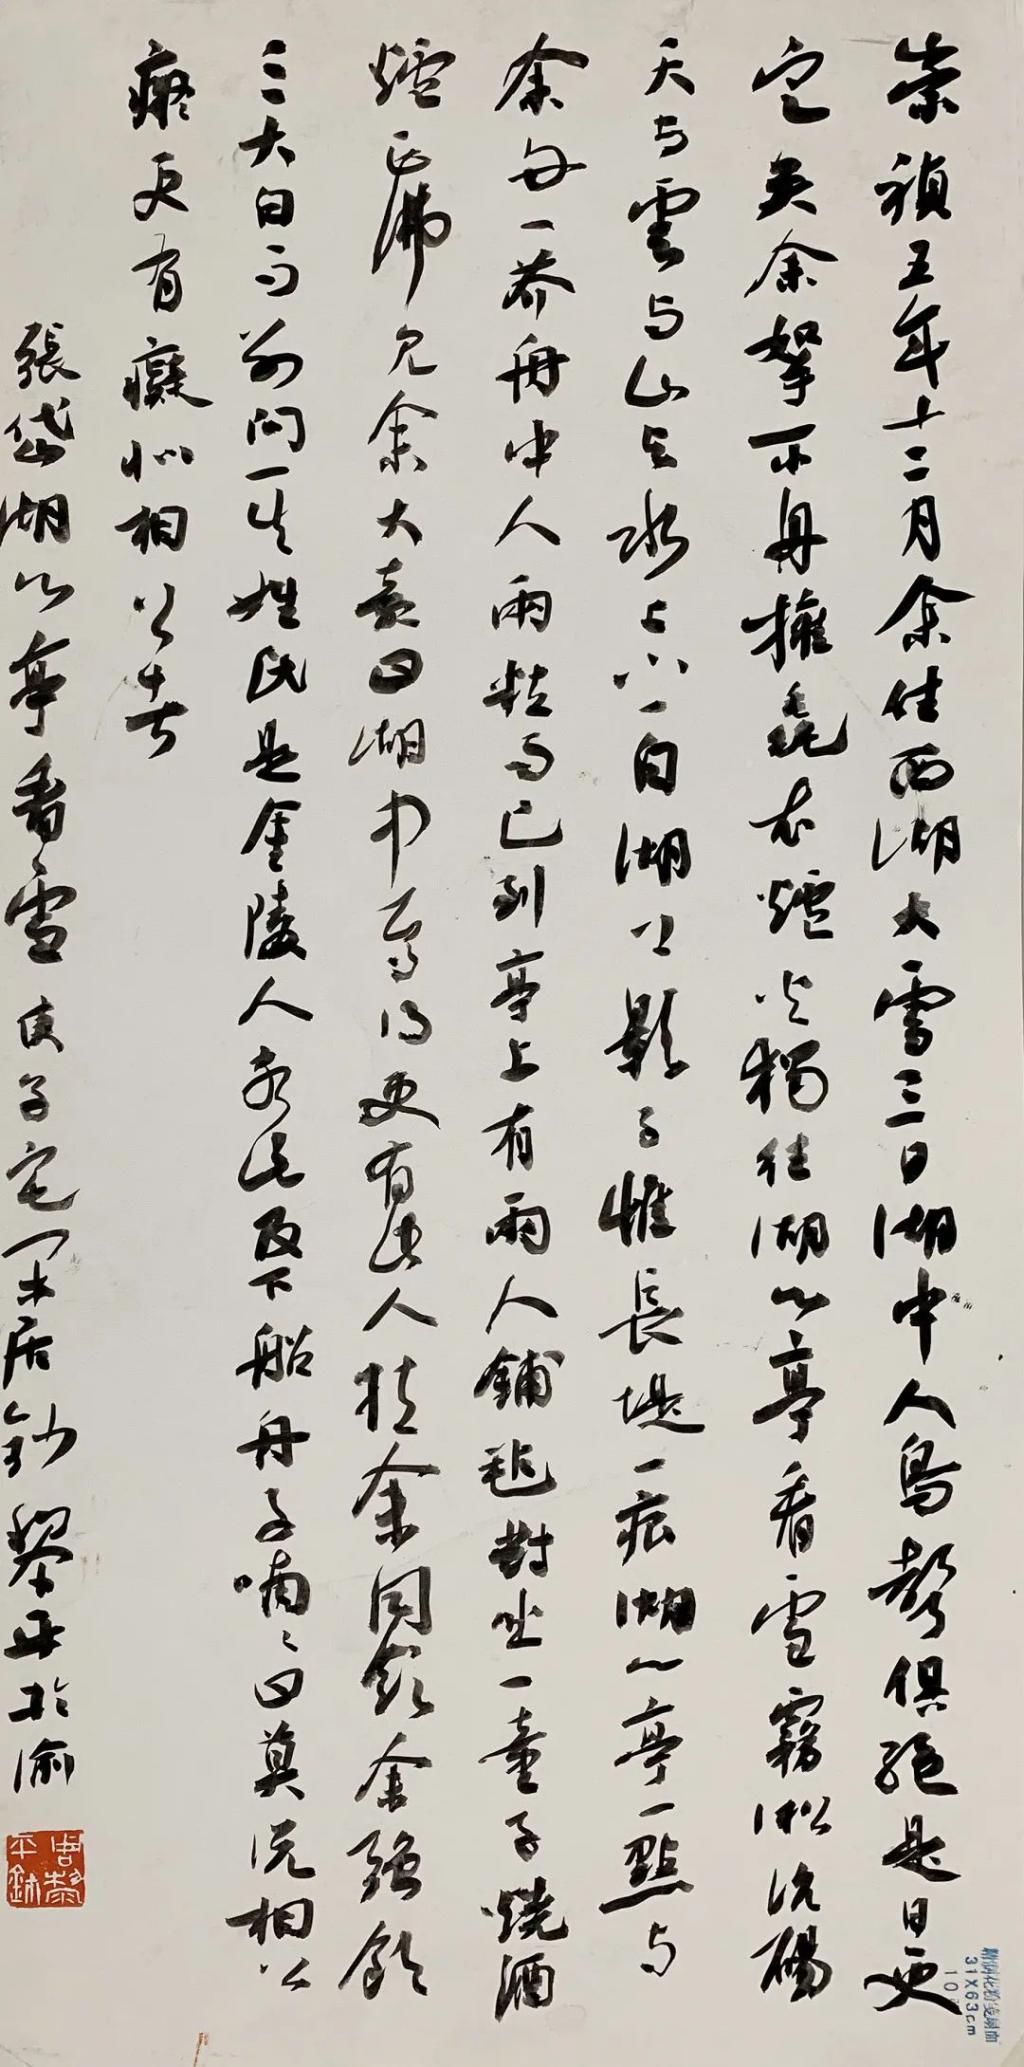 崇禎五年十二月余住西湖大雪三日湖中人鳥聲俱絕是日更
定矣余拏一小舟擁毳衣爐火獨往湖心亭看雪霧淞沆碭
天與雲與山與水上下一白湖上影子惟長堤一痕湖心亭一點與
余舟一芥舟中人兩粒而已到亭上有兩人鋪氈對坐一童子燒酒
爐正沸見余大喜曰湖中焉得更有此人拉余同飲余強飲
三大白而別問其姓氏是金陵人客此及下船舟子喃々曰莫說相公
癡更有癡似相公者
張岱湖心亭看雪 庚子宅家居鈔 黎平於渝
31X63cm
10